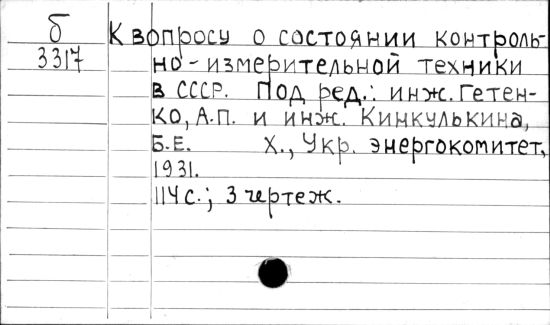 Б К вопросу о состоянии контроль-
3317 но-измерительной техники
в СССР. Под ред.: инж. Гетен-
ко, А.П. и инж. Кинкулькина,
Б.Е. Х., Укр. энергокомитет,
1931.
114 с.; 3 чертеж.